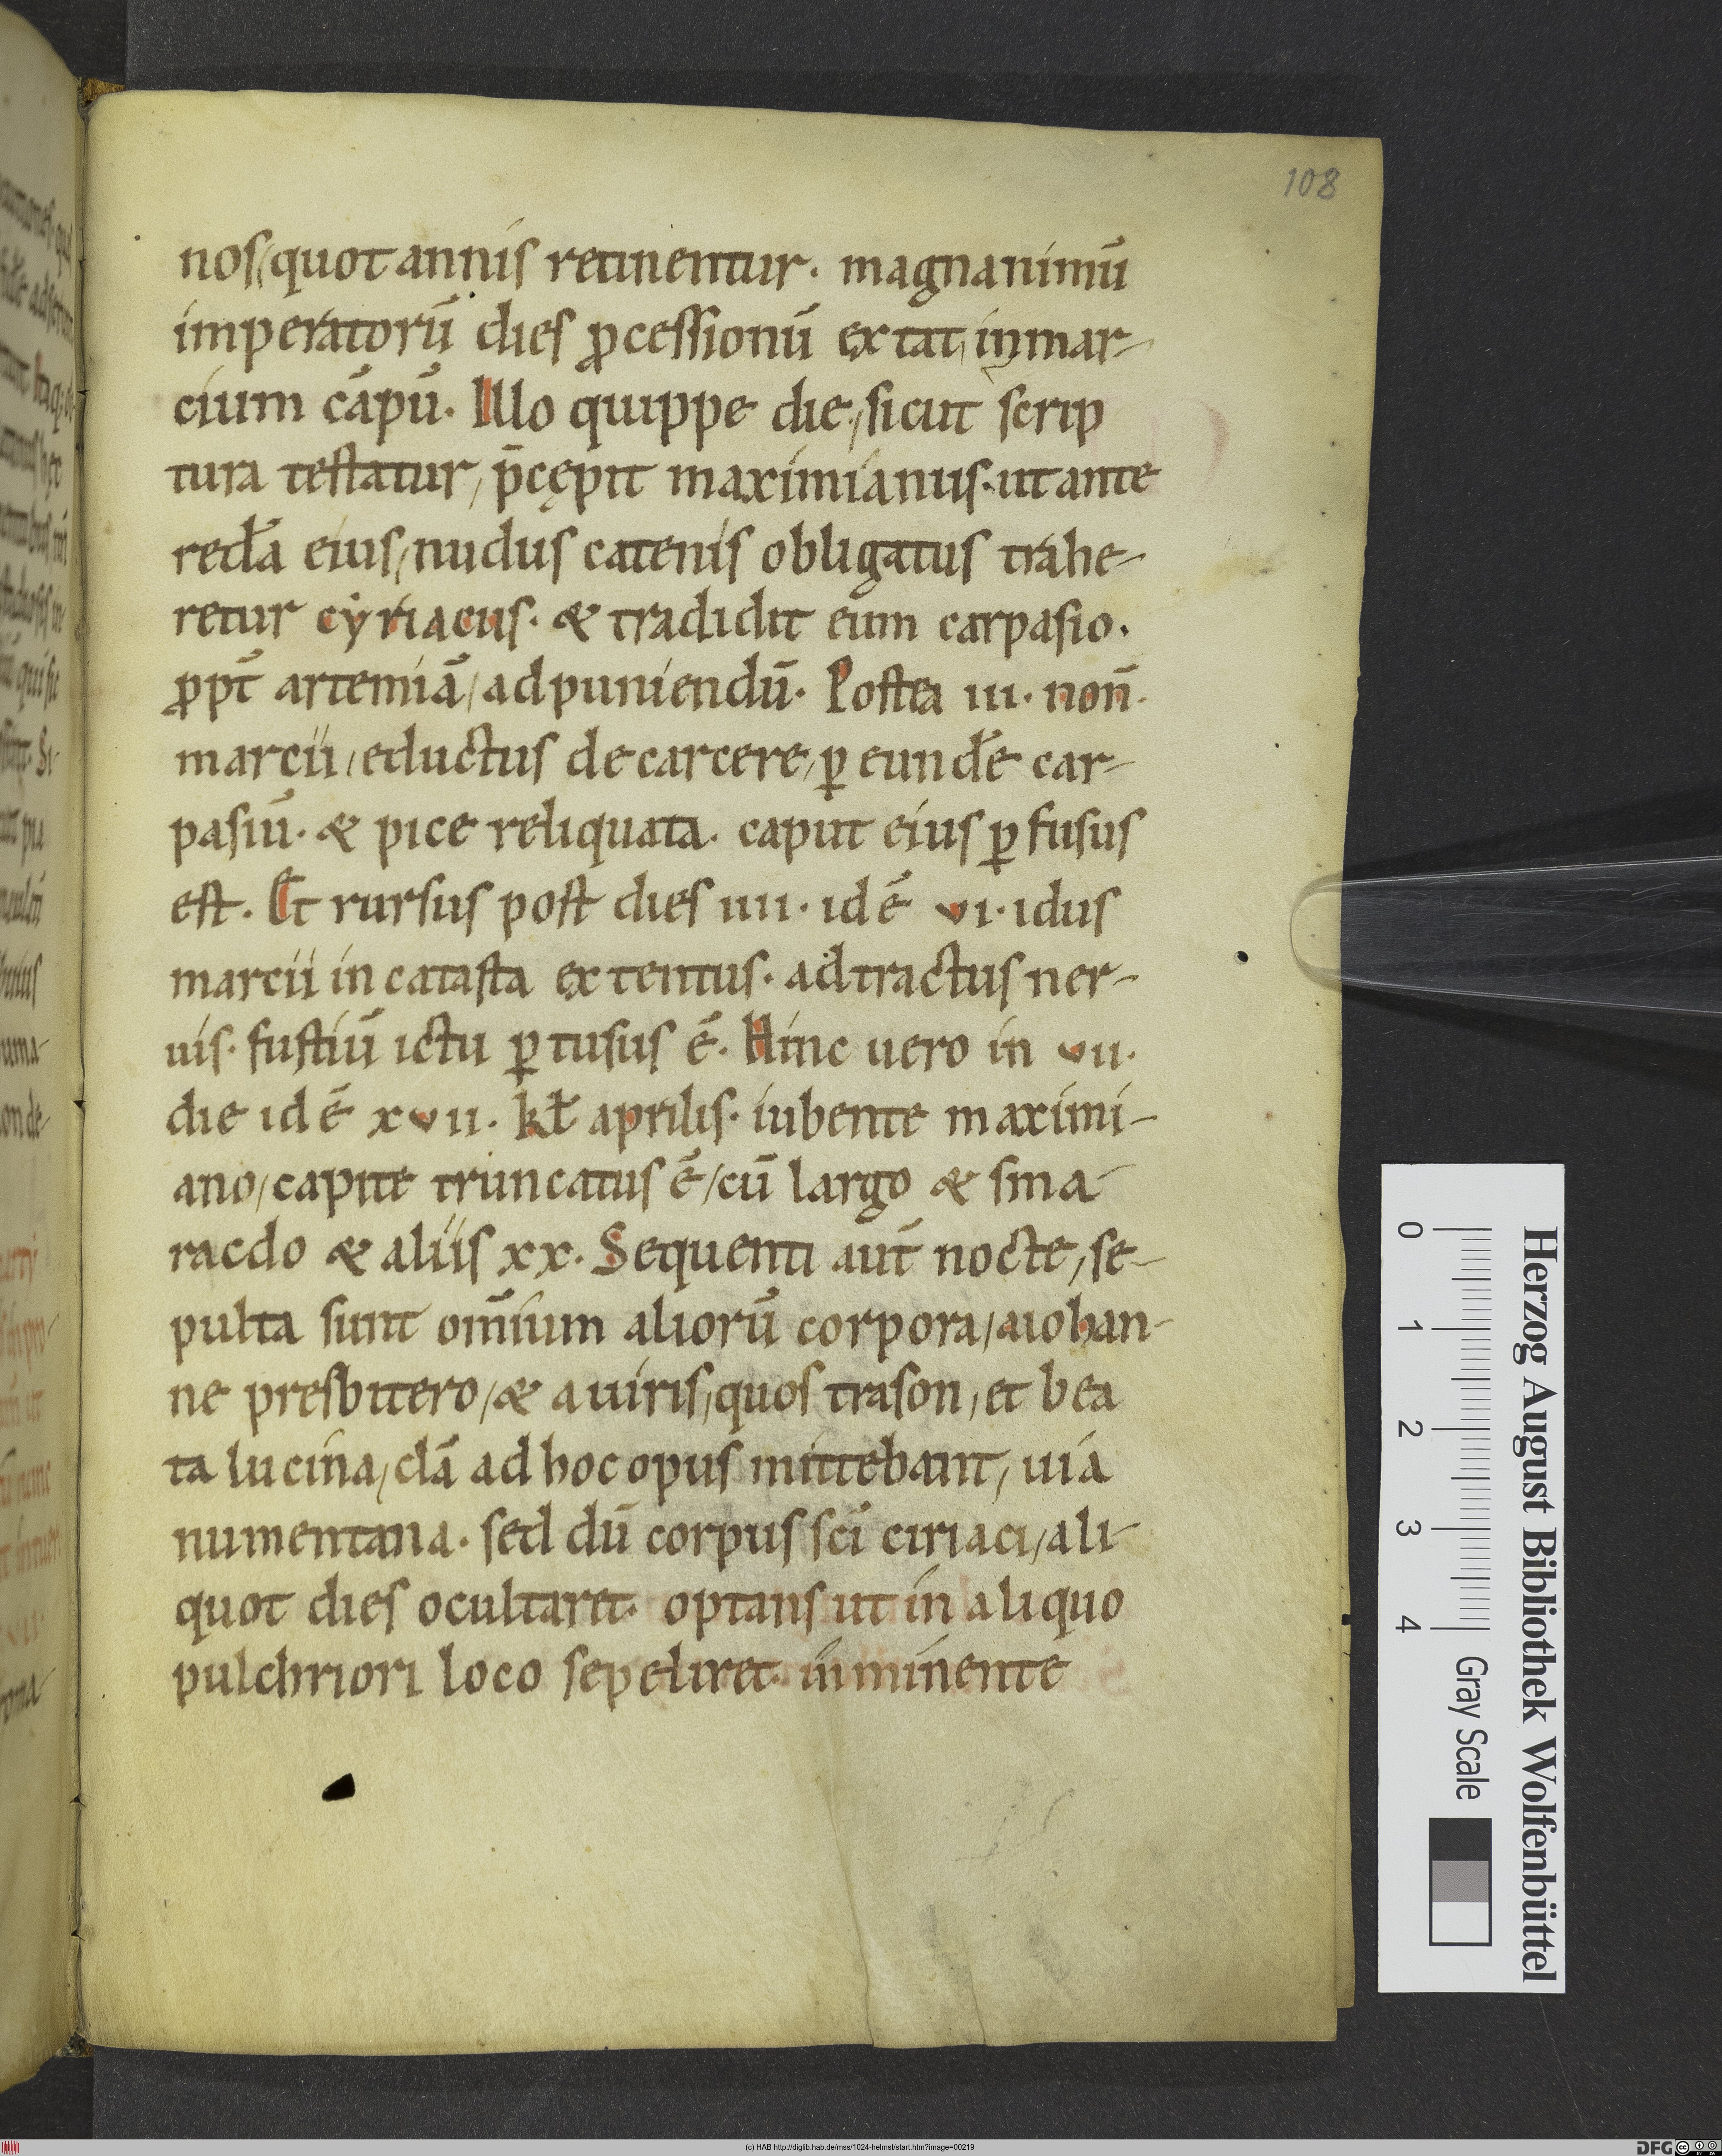 108
nos, quot annis retinentur. magnanimū
imperatorū dies ꝓcessionū extat, in mar-
cium cāpū. Illo quippe die, sicut scrip
tura testatur, p̄cępit maximianus. ut ante
redā eius, nudus catenis obligatus trahe-
retur cẏriacus. & tradidit eum carpasio.
ꝓpt̄ artemiā, ad puniendū. Postea iii. non̄.
marcii, eductus de carcere, ꝑ eundē car-
pasiū. & pice reliquata. caput eius ꝑfusus
est. Et rursus post dies iiii. idē vi. idus
marcii in catasta extentus. adtractus ner-
uis. fustiū ictu ꝑtusus ē. Hinc uero in vii.
die idē xvii. kł aprilis. iubente maximi-
ano, capite truncatus ē, cū largo & sma-
racdo & aliis xx. Sequenti aut̄ nocte, se-
pulta sunt om̄ium aliorū corpora, a iohan-
ne presbitero, & a uiris, quos trason, et bea
ta lucina, clā ad hoc opus mittebant, uia
numentana. sed dū corpus sc̄i ciriaci, ali-
quot dies ocultaret. optans ut in aliquo
pulchriori loco sepeliret. inminente
Herzog August Bibliothek Wolfenbüttel
0 1 2 3 4 Gray Scale
(c) HAB http://diglib.hab.de/mss/1024-helmst/start.htm?image=00219
DFG